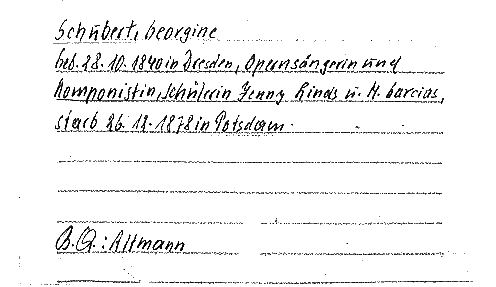 Schubert, Georgine
geb. 28.10.1840 in Dresden, Opernsängerin und
Komponistin, Schülerin Jenny Linds u. M. Garcias,
starb 26.12.1878 in Potsdam.
B.Q.: Altmann